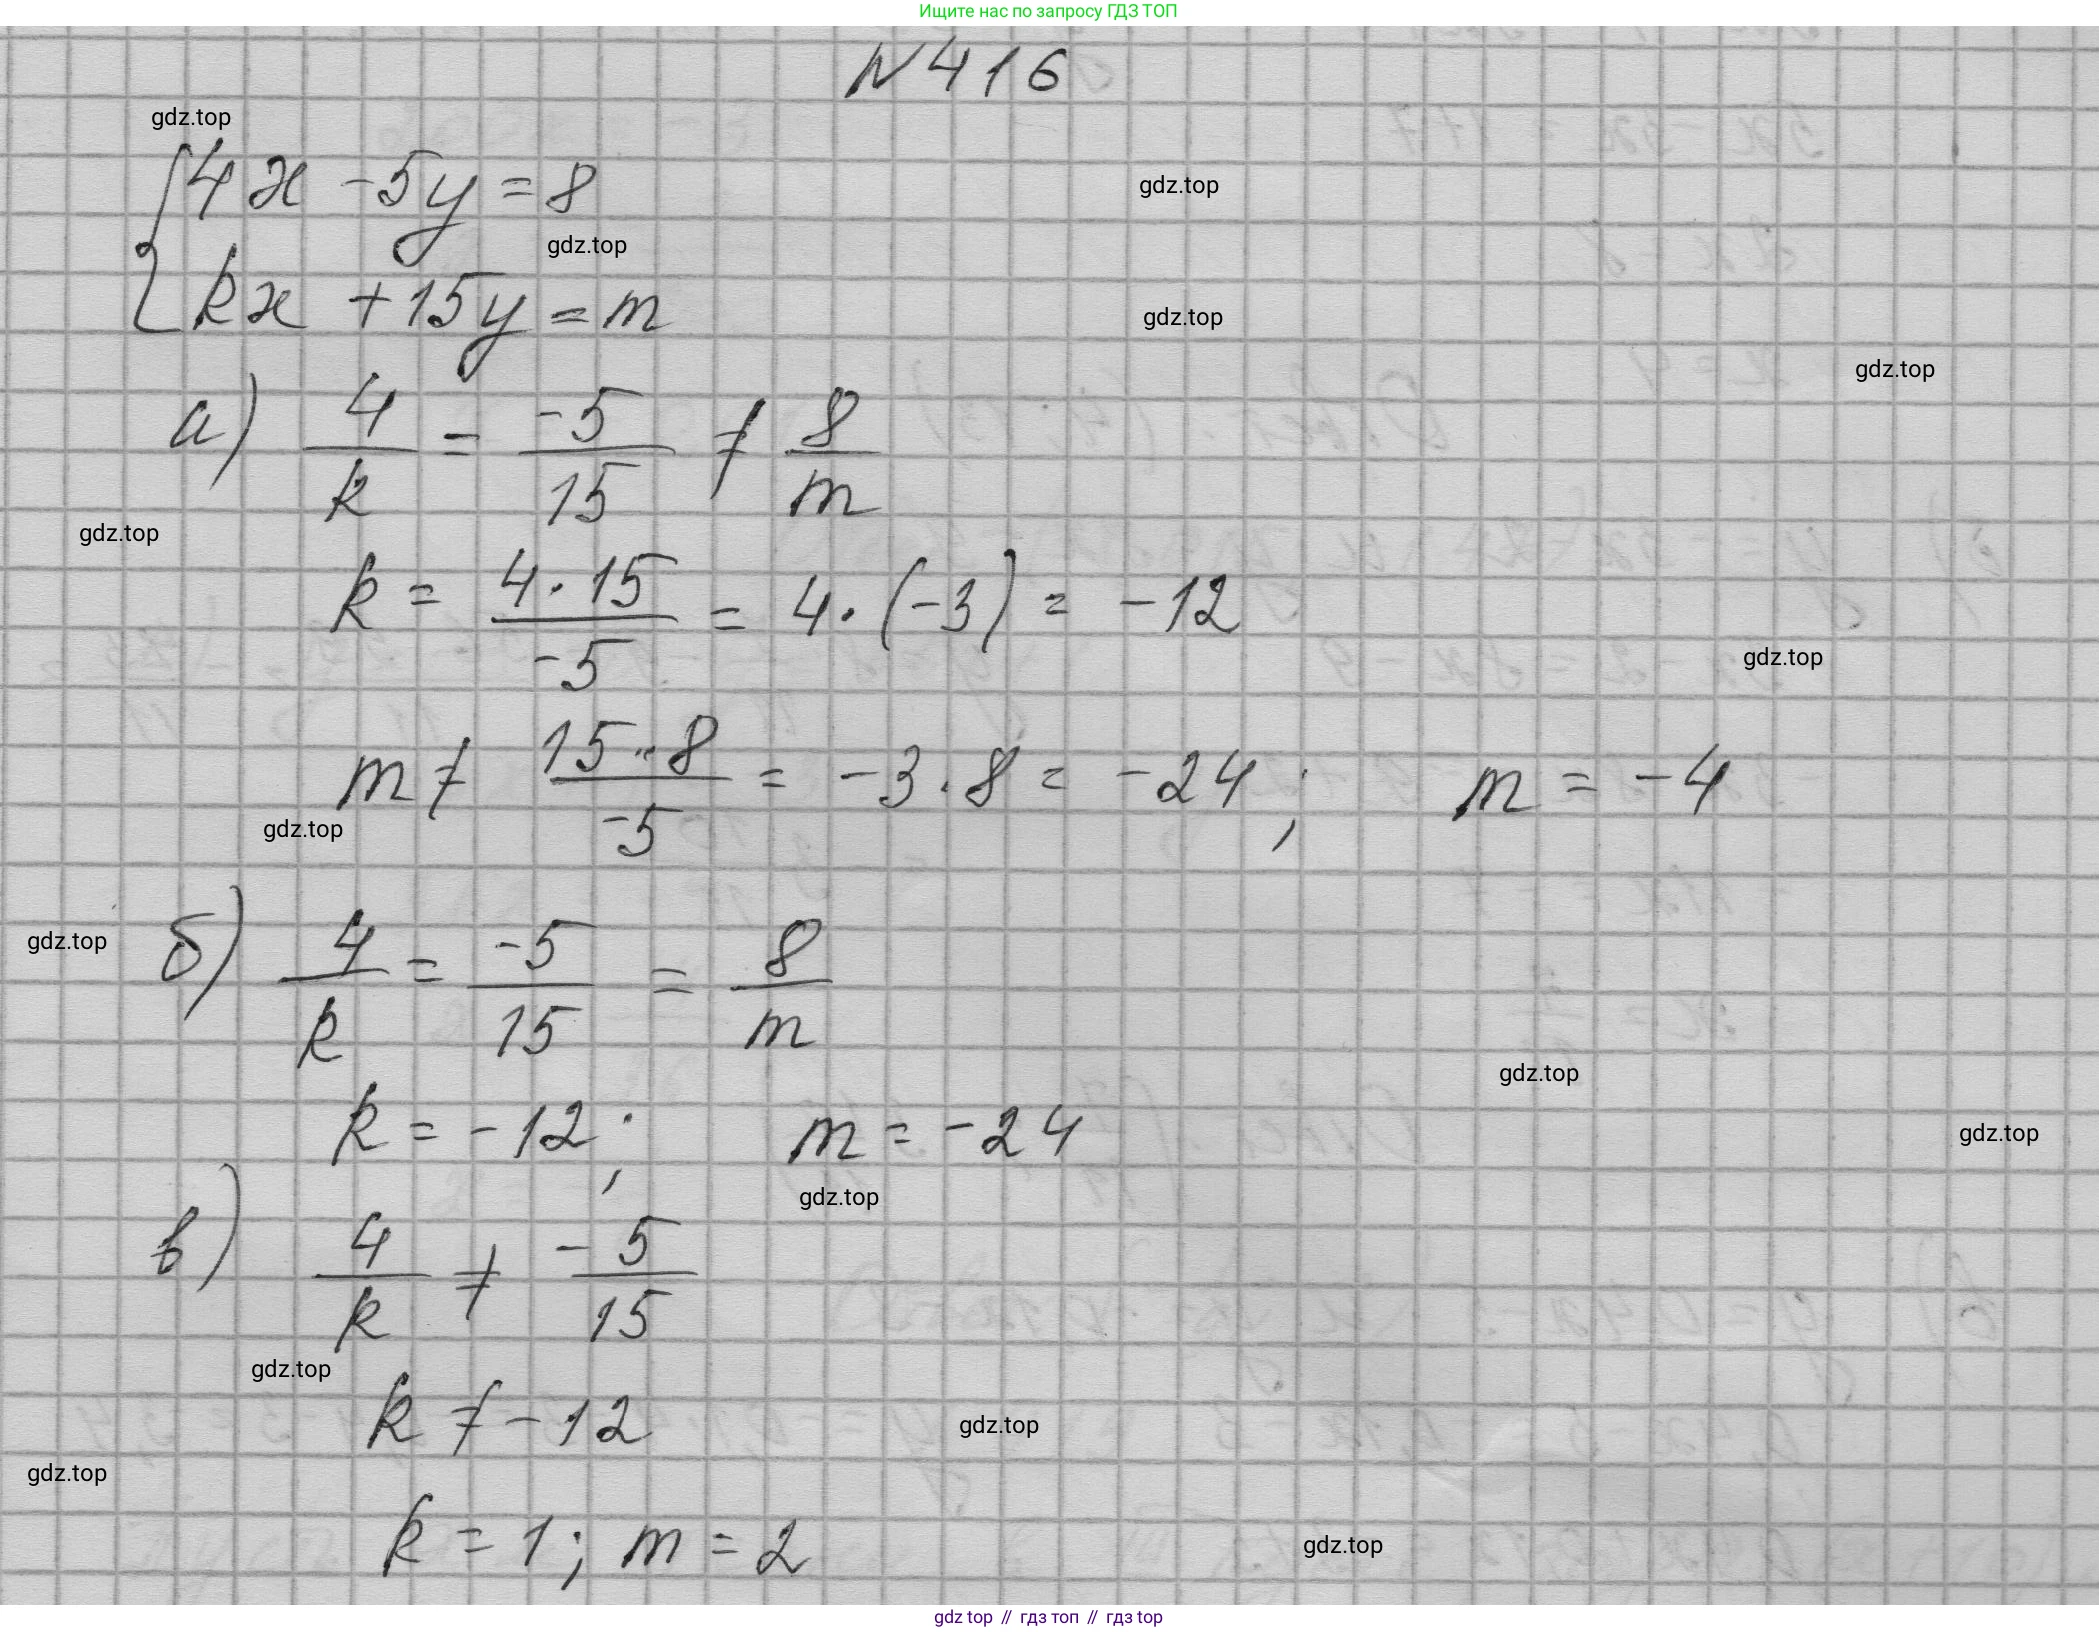 Ищите нас по запросу ГДЗ ТОП
N 416
gdz.top
{4x - 5y = 8
gdz.top
gdz.top
kx + 15y = m
gdz.top
gdz.top
а) 4/k = -5/15 ≠ 8/m
gdz.top
k = 4·15/-5 = 4·(-3) = -12
gdz.top
m ≠ 15·8/-5 = -3·8 = -24; m = -4
gdz.top
gdz.top
б) 4/k = -5/15 = 8/m
gdz.top
k = -12; m = -24
gdz.top
gdz.top
в) 4/k ≠ -5/15
gdz.top
k ≠ -12
gdz.top
gdz.top
k = 1; m = 2
gdz.top
gdz top // гдз топ // гдз top